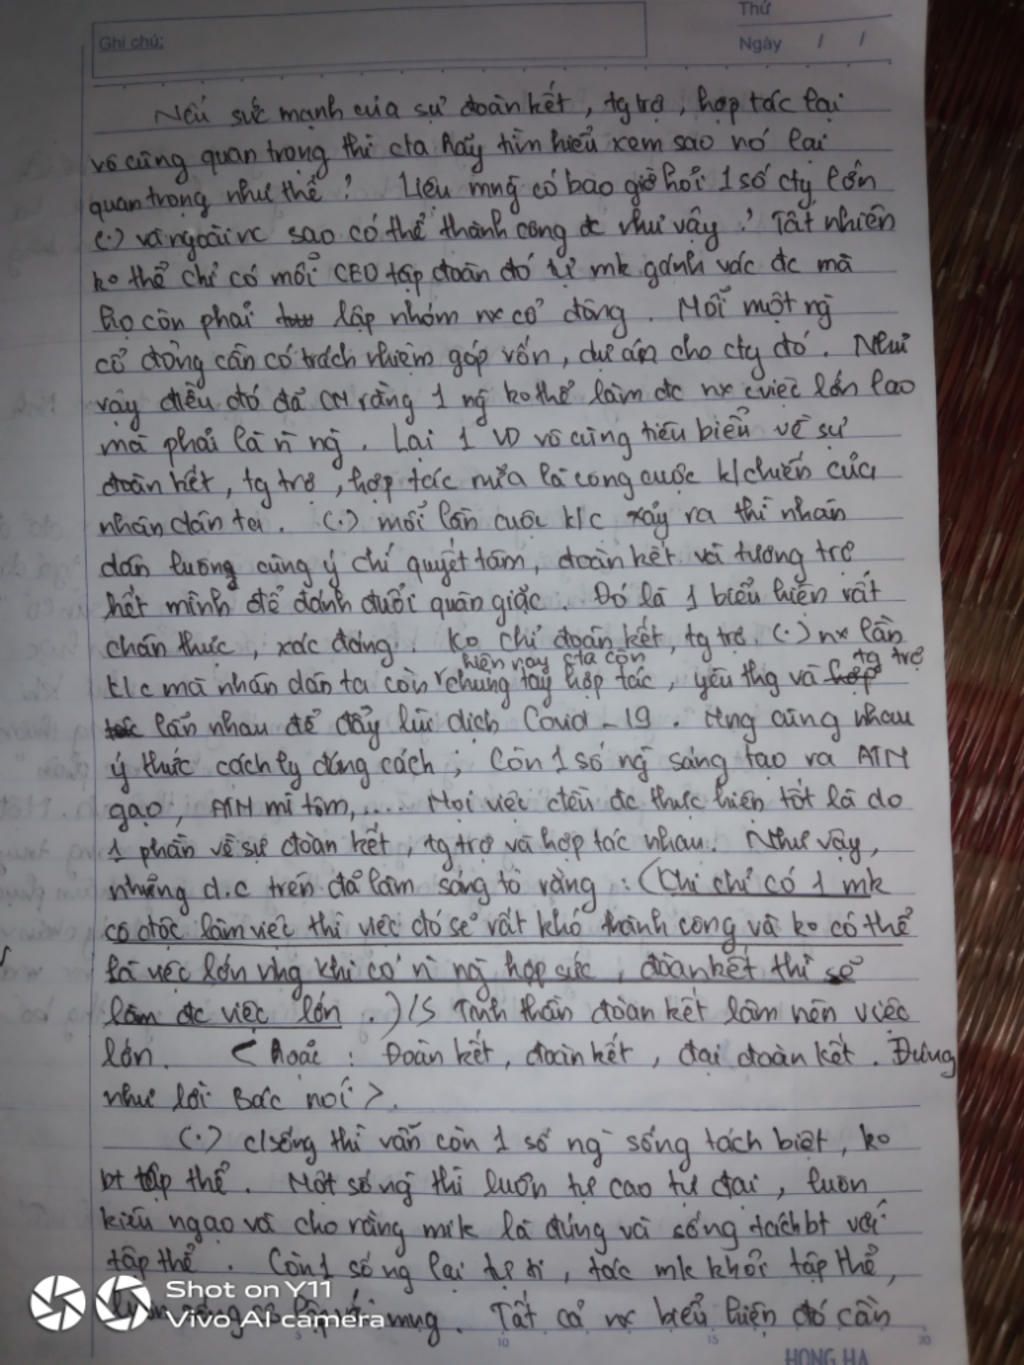 Thứ
Ghi chú:
Ngày / /
Nếu sức mạnh của sự đoàn kết, tg trợ, hợp tác lại
vô cùng quan trọng thì cta hãy tìm hiểu xem sao nó lại
quan trọng như thế? Liệu mng có bao giờ hỏi 1 số cty lớn
(.) và ngoài nc sao có thể thành công đc như vậy? Tất nhiên
ko thể chỉ có mỗi CEO tập đoàn đó tự mk gánh vác đc mà
họ còn phải lập nhóm nx cổ đông. Mỗi một ng
cổ đông cần có trách nhiệm góp vốn, dự án cho cty đó. Như
vậy điều đó đã CM rằng 1 ng ko thể làm đc nx cviệc lớn lao
mà phải là n ng. Lại 1 VD vô cùng tiêu biểu về sự
đoàn kết, tg trợ, hợp tác nữa là công cuộc k/chiến của
nhân dân ta. (.) mỗi lần cuộc k/c xảy ra thì nhân
dân luông cùng ý chí quyết tâm, đoàn kết và tương trợ
hết mình để đánh đuổi quân giặc. Đó là 1 biểu hiện rất
chân thực, xác đáng. Ko chỉ đoàn kết, tg trợ (.) nx lần
hiện nay cta còn tg trợ
k/c mà nhân dân ta còn chung tay hợp tác, yêu thg và hợp
tác lẫn nhau để đẩy lùi dịch Covid-19. Mng cùng nhau
ý thức cách ly đúng cách; Còn 1 số ng sáng tạo ra ATM
gạo, ATM mì tôm,.... Mọi việc đều đc thực hiện tốt là do
1 phần về sự đoàn kết, tg trợ và hợp tác nhau. Như vậy,
những d.c trên đã làm sáng tỏ rằng: (Khi chỉ có 1 mk
cô độc làm việc thì việc đó sẽ rất khó thành công và ko có thể
là việc lớn nhg khi có n ng hợp sức, đoàn kết thì sẽ
làm đc việc lớn.)/S Tinh thần đoàn kết làm nên việc
lớn. <hoặc: Đoàn kết, đoàn kết, đại đoàn kết. Đúng
như lời Bác nói>.
(.) c/sống thì vẫn còn 1 số ng sống tách biệt, ko
bt tập thể. Một số ng thì luôn tự cao tự đại, luôn
kiêu ngạo và cho rằng mk là đúng và sống tách bt với
tập thể. Còn 1 số ng lại tự ti, tác mk khỏi tập thể,
mng. Tất cả nx biểu hiện đó cần
Shot on Y11
Vivo AI camera
5 10 15 20
HONG HA